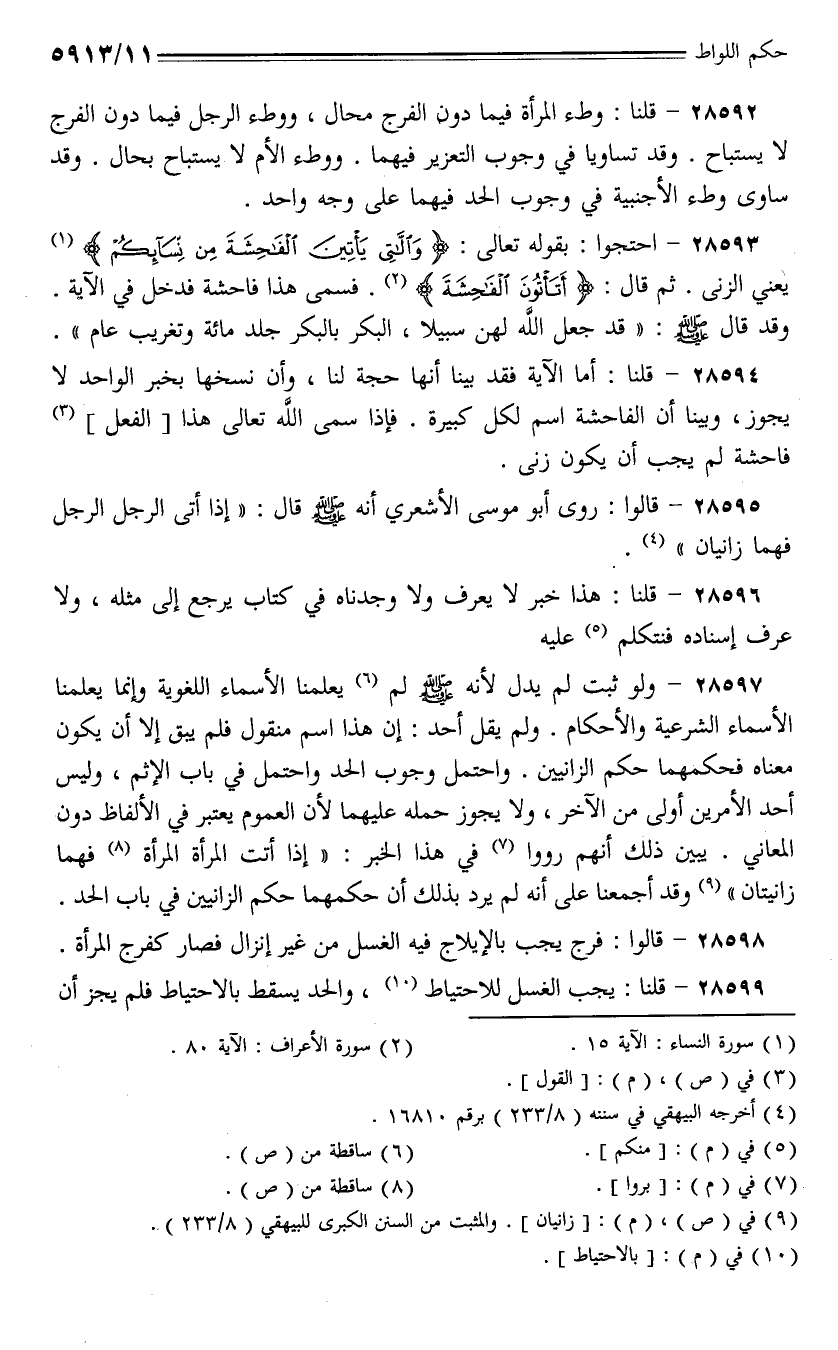 حكم اللواط ٥٩١٣/١١
٢٨٥٩٢ - قلنا : وطء المرأة فيما دون الفرج محال ، ووطء الرجل فيما دون الفرج
لا يستباح . وقد تساويا في وجوب التعزير فيهما . ووطء الأم لا يستباح بحال . وقد
ساوى وطء الأجنبية في وجوب الحد فيهما على وجه واحد .
٢٨٥٩٣ - احتجوا : بقوله تعالى : ﴿ وَٱلَّٰتِي يَأۡتِينَ ٱلۡفَٰحِشَةَ مِن نِّسَآئِكُمۡ ﴾ (١)
يعني الزنى . ثم قال : ﴿ أَتَأۡتُونَ ٱلۡفَٰحِشَةَ ﴾ (٢) . فسمى هذا فاحشة فدخل في الآية .
وقد قال ﷺ : « قد جعل اللَّه لهن سبيلا ، البكر بالبكر جلد مائة وتغريب عام » .
٢٨٥٩٤ - قلنا : أما الآية فقد بينا أنها حجة لنا ، وأن نسخها بخبر الواحد لا
يجوز ، وبينا أن الفاحشة اسم لكل كبيرة . فإذا سمى اللَّه تعالى هذا [ الفعل ] (٣)
فاحشة لم يجب أن يكون زنى .
٢٨٥٩٥ - قالوا : روى أبو موسى الأشعري أنه ﷺ قال : « إذا أتى الرجل الرجل
فهما زانيان » (٤) .
٢٨٥٩٦ - قلنا : هذا خبر لا يعرف ولا وجدناه في كتاب يرجع إلى مثله ، ولا
عرف إسناده فنتكلم (٥) عليه
٢٨٥٩٧ - ولو ثبت لم يدل لأنه ﷺ لم (٦) يعلمنا الأسماء اللغوية وإنما يعلمنا
الأسماء الشرعية والأحكام . ولم يقل أحد : إن هذا اسم منقول فلم يبق إلا أن يكون
معناه فحكمهما حكم الزانيين . واحتمل وجوب الحد واحتمل في باب الإثم ، وليس
أحد الأمرين أولى من الآخر ، ولا يجوز حمله عليهما لأن العموم يعتبر في الألفاظ دون
المعاني . يبين ذلك أنهم رووا (٧) في هذا الخبر : « إذا أتت المرأة المرأة (٨) فهما
زانيتان » (٩) وقد أجمعنا على أنه لم يرد بذلك أن حكمهما حكم الزانيين في باب الحد .
٢٨٥٩٨ - قالوا : فرج يجب بالإيلاج فيه الغسل من غير إنزال فصار كفرج المرأة .
٢٨٥٩٩ - قلنا : يجب الغسل للاحتياط (١٠) ، والحد يسقط بالاحتياط فلم يجز أن
(١) سورة النساء : الآية ١٥ . (٢) سورة الأعراف : الآية ٨٠ .
(٣) في ( ص ) ، ( م ) : [ القول ] .
(٤) أخرجه البيهقي في سننه ( ٢٣٣/٨ ) برقم ١٦٨١٠ .
(٥) في ( م ) : [ منكم ] . (٦) ساقطة من ( ص ) .
(٧) في ( م ) : [ بروا ] . (٨) ساقطة من ( ص ) .
(٩) في ( ص ) ، ( م ) : [ زانيان ] . والمثبت من السنن الكبرى للبيهقي ( ٢٣٣/٨ ) .
(١٠) في ( م ) : [ بالاحتياط ] .